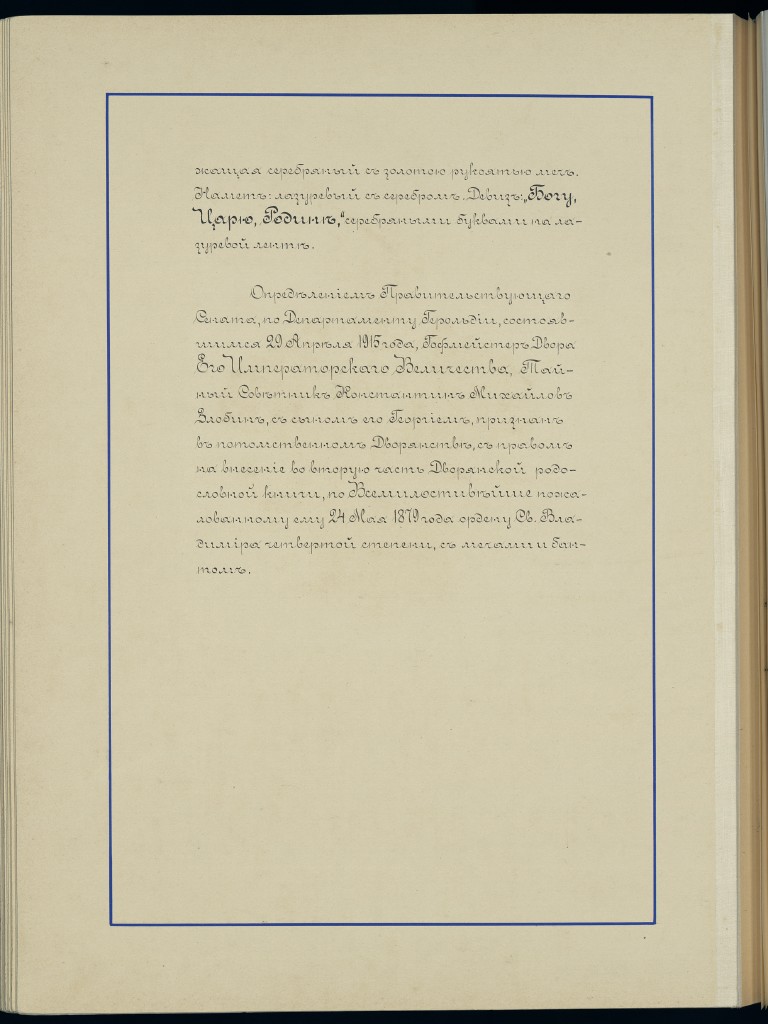 жащая серебряный съ золотою рукоятью мечъ.
Наметъ: лазуревый съ серебромъ. Девизъ: „Богу,
Царю, Родинѣ,“ серебряными буквами на ла-
зуревой лентѣ.
Опредѣленіемъ Правительствующаго
Сената, по Департаменту Герольдіи, состояв-
шимся 29 Апрѣля 1915 года, Гофмейстеръ Двора
Его Императорскаго Величества, Тай-
ный Совѣтникъ Константинъ Михайловъ
Злобинъ, съ сыномъ его Георгіемъ, признанъ
въ потомственномъ Дворянствѣ, съ правомъ
на внесеніе во вторую часть Дворянской родо-
словной книги, по Всемилостивѣйше пожа-
лованному ему 24 Мая 1879 года ордену Св. Вла-
диміра четвертой степени, съ мечами и бан-
томъ.